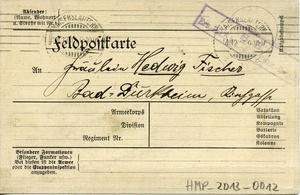 Absender:
(Name, Wohnort
KAISERSLAUTERN
Feldpostkarte
An Fräulein Hedwig Fischer
Bad-Dürkheim,
Armeekorps
Division
Regiment No.
Bataillon
Abteilung
Kompagnie
Batterie
Eskadron
Kolonne
Besondere Formationen
(Flieger, Funker usw.)
Bei diesen ist die Armee
oder die Etappeninspektion
anzugeben.
HMP-2013-0012